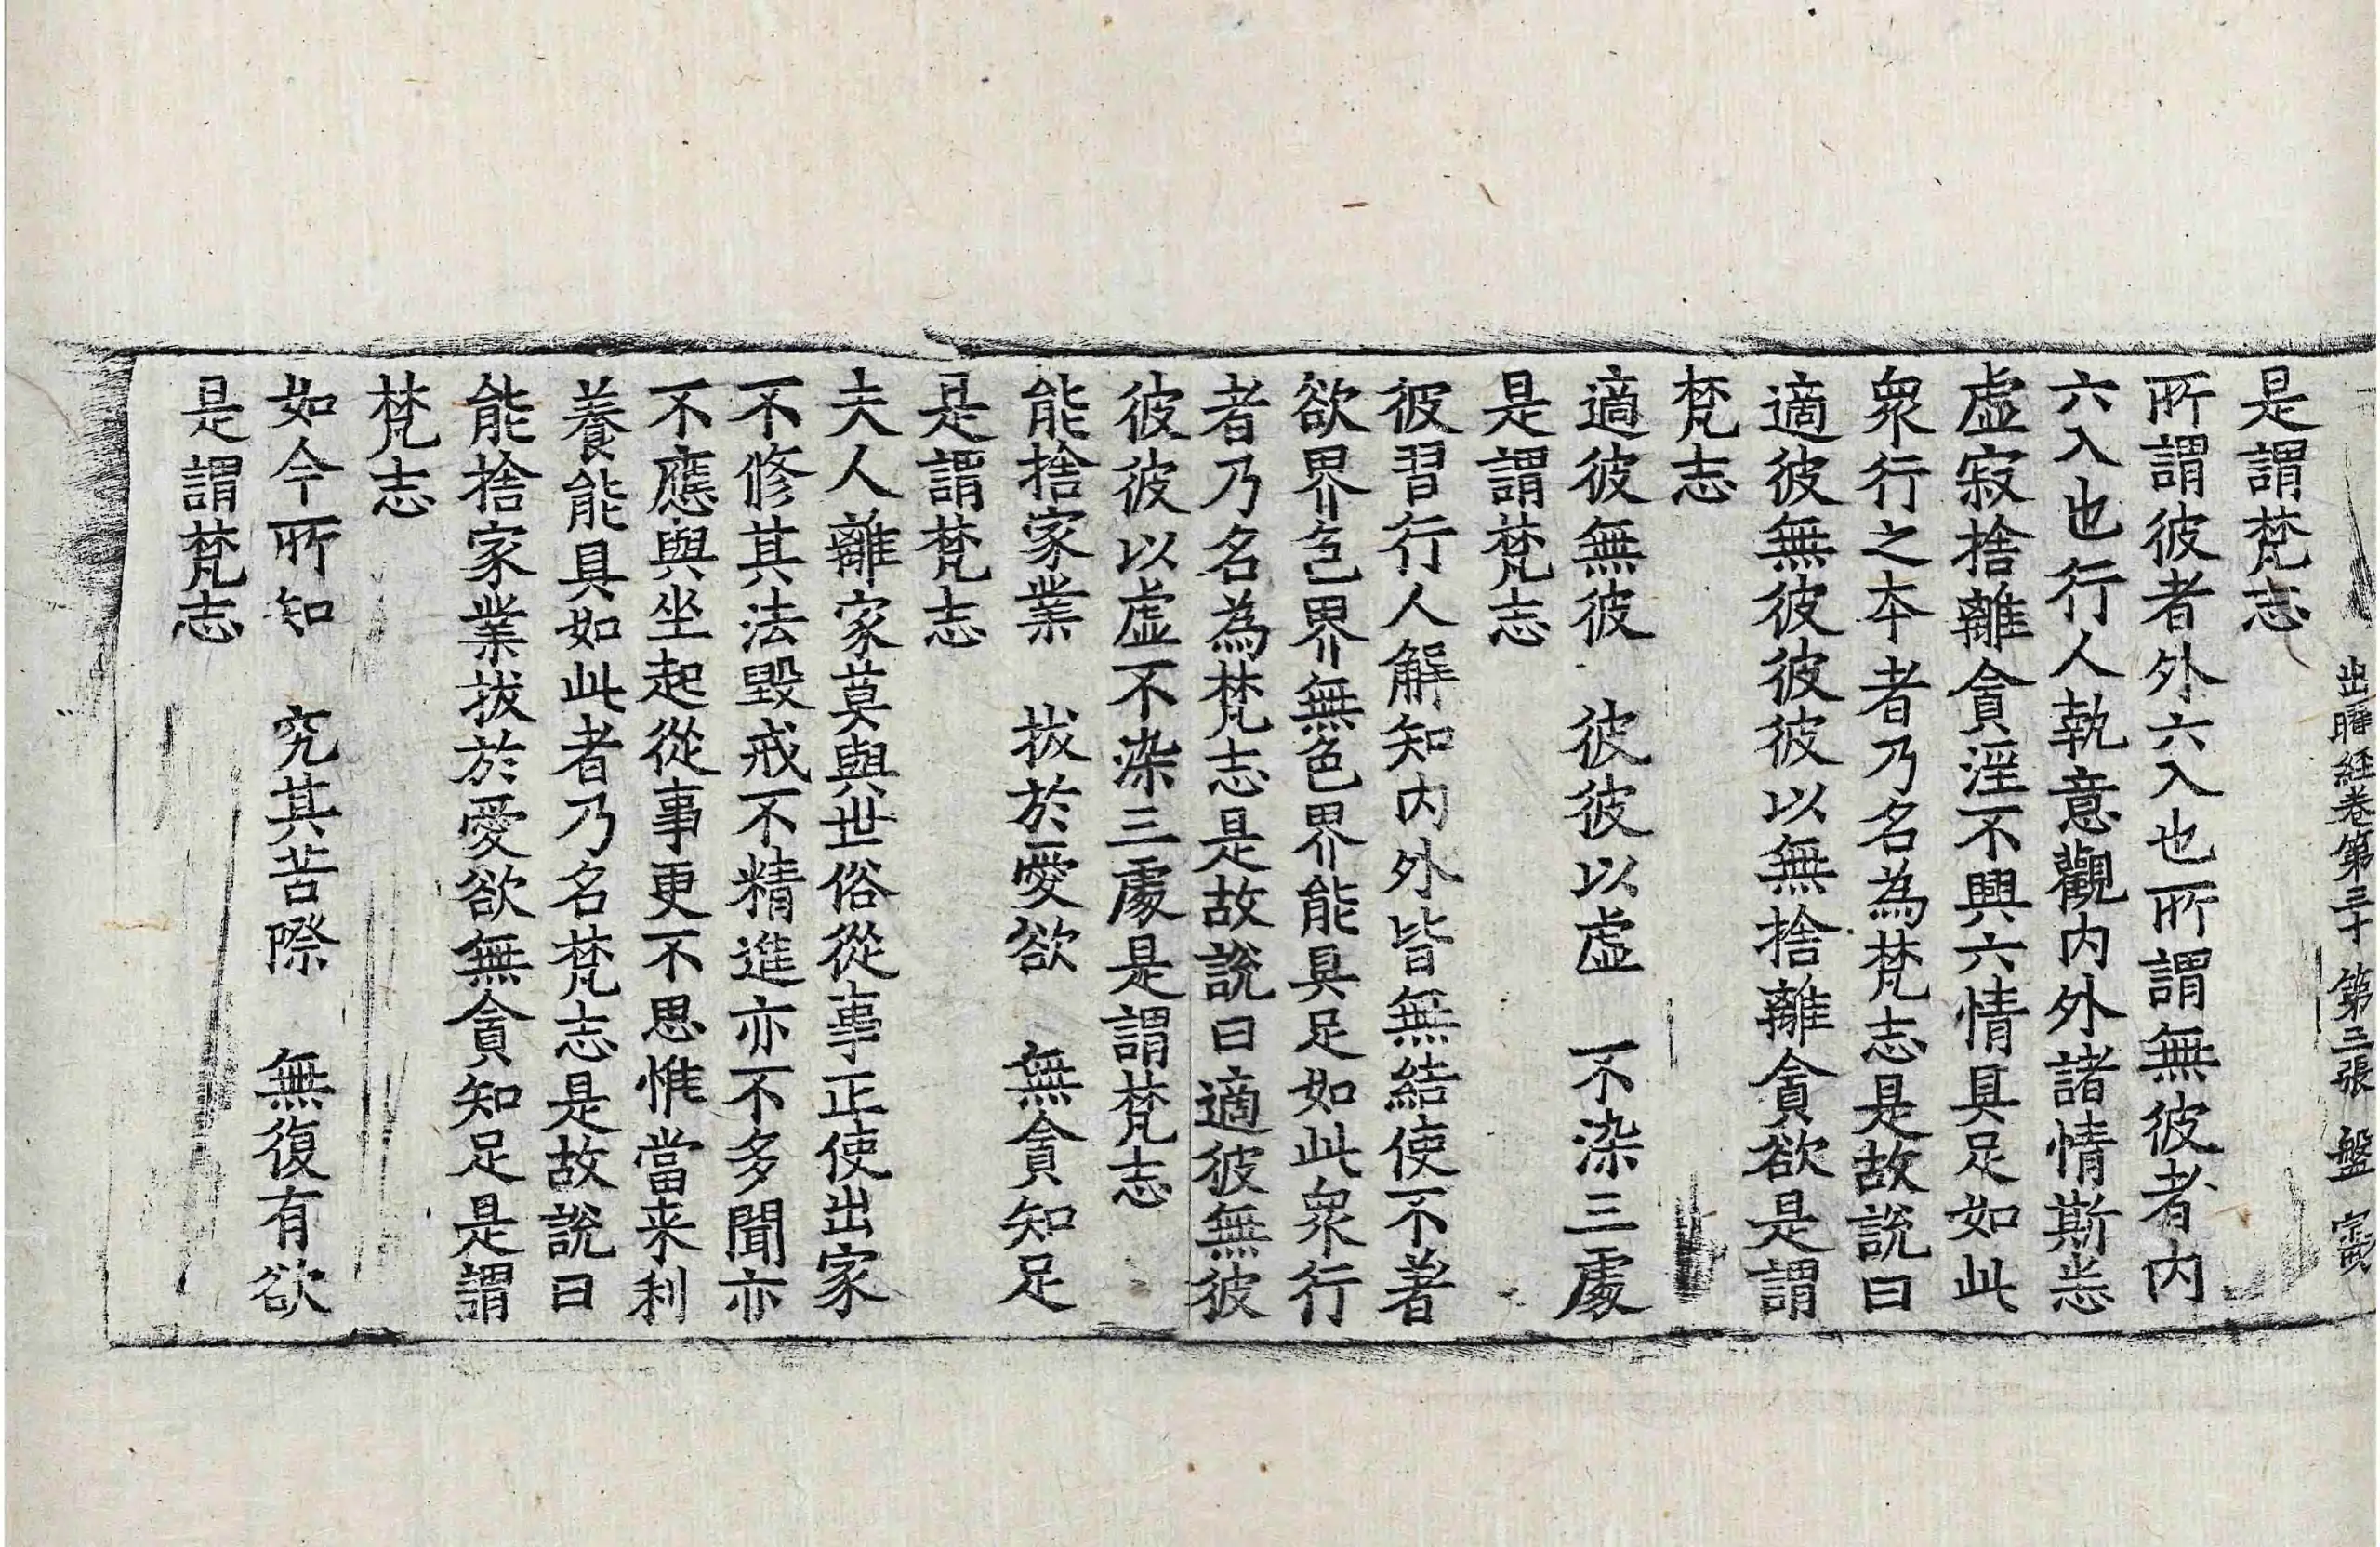 出曜経卷第三十 第三張 盤
是謂梵志
所謂彼者外六入也所謂無彼者内
六入也行人執意觀内外諸情斯恙
虛寂捨離貪淫不興六情具足如此
衆行之本者乃名為梵志是故説曰
適彼無彼彼彼以無捨離貪欲是謂
梵志
適彼無彼 彼彼以虛 不染三處
是謂梵志
彼習行人解知内外皆無結使不著
欲界色界無色界能具足如此衆行
者乃名為梵志是故説曰適彼無彼
彼彼以虛不染三處是謂梵志
能捨家業 拔於愛欲 無貪知足
是謂梵志
夫人離家莫與世俗從事正使出家
不修其法毀戒不精進亦不多聞亦
不應與坐起從事更不思惟當来利
養能具如此者乃名梵志是故説曰
能捨家業拔於愛欲無貪知足是謂
梵志
如今所知 究其苦際 無復有欲
是謂梵志